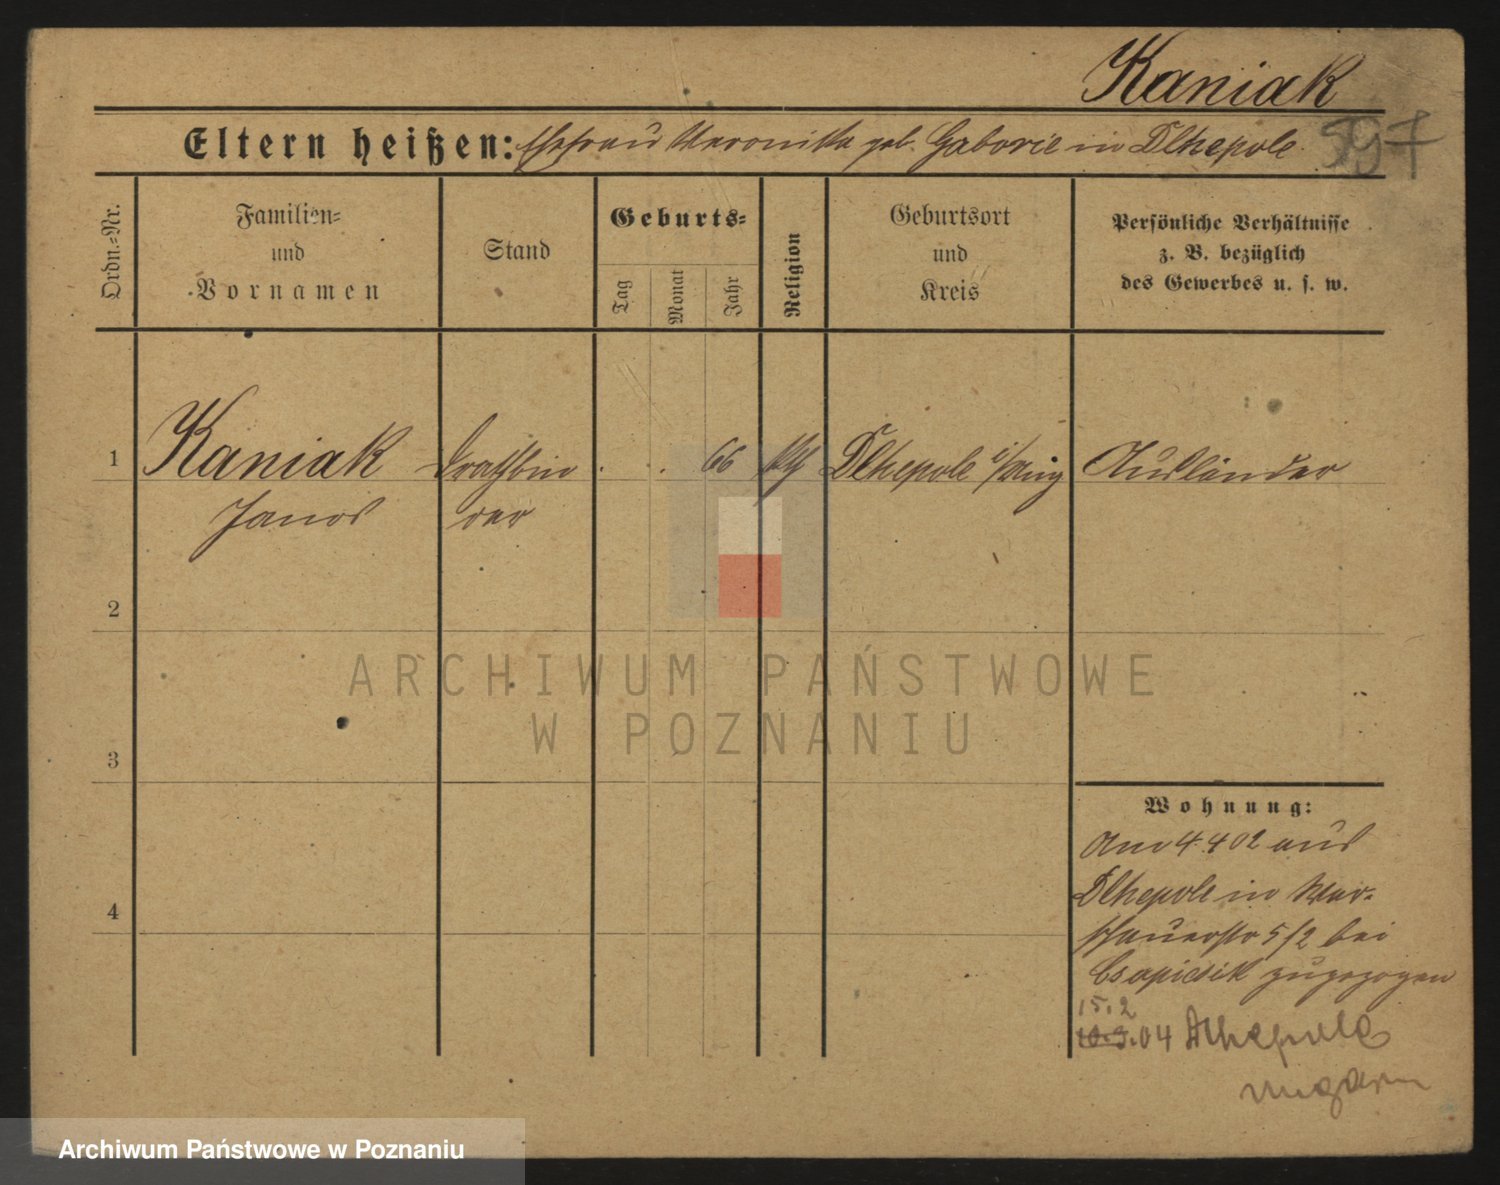 Kaniak
Eltern heißen: Ehefrau Veronika geb. Gaborie in Dlhepole
597
Ordn.-Nr.
Familien-
und
Vornamen
Stand
Geburts-
Tag
Monat
Jahr
Religion
Geburtsort
und
Kreis
Persönliche Verhältnisse
z. B. bezüglich
des Gewerbes u. s. w.
1 Kaniak Drathbin . . 66 kth Dlhepole i/Ung Ausländer
Janos der
2
3
4
ARCHIWUM PAŃSTWOWE
W POZNANIU
Wohnung:
Am 4.4 02 aus
Dlhepole in War-
schauerstr 5/2 bei
Csapicsik zugezogen
15.2
10.3.04 Dlhepole
Ungarn
Archiwum Państwowe w Poznaniu